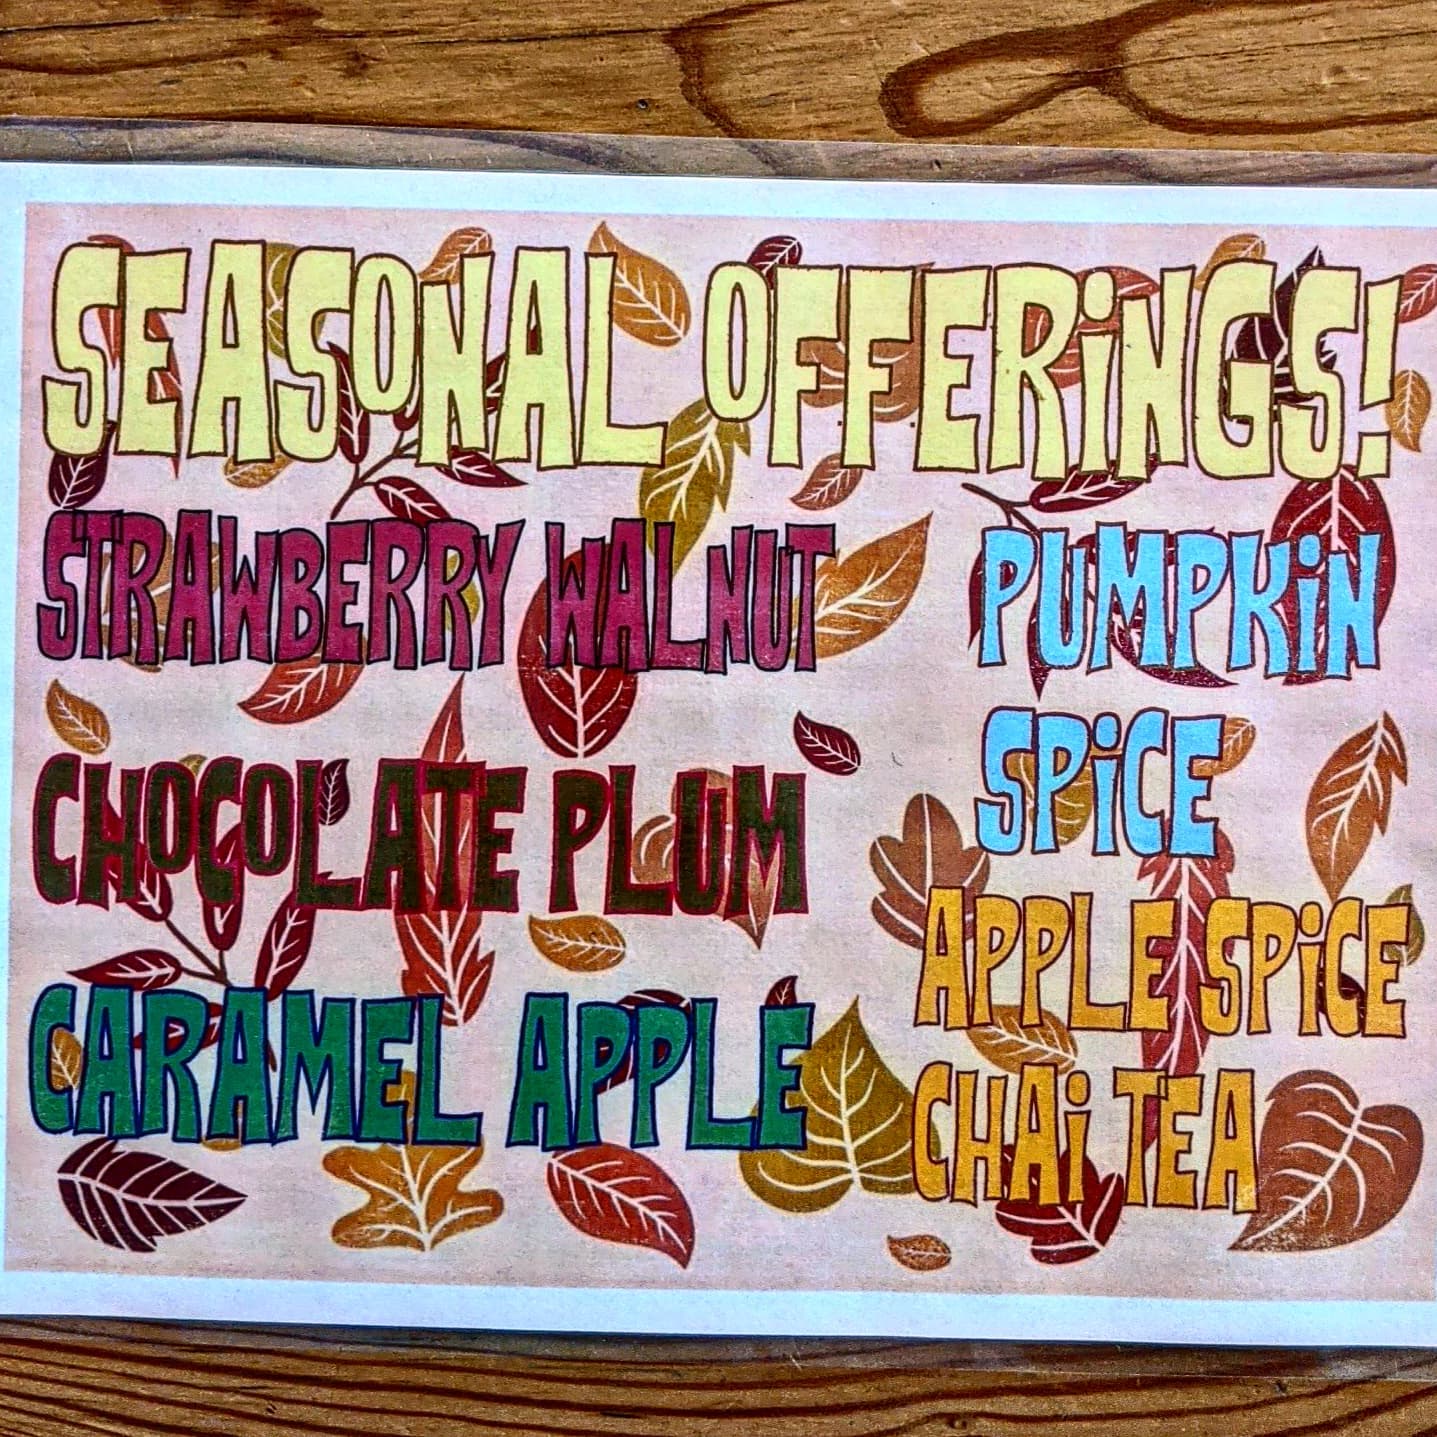 SEASONAL OFFERiNGS!
STRAWBERRY WALNUT
CHOCOLATE PLUM
CARAMEL APPLE
PUMPKiN
SPiCE
APPLE SPiCE
CHAi TEA